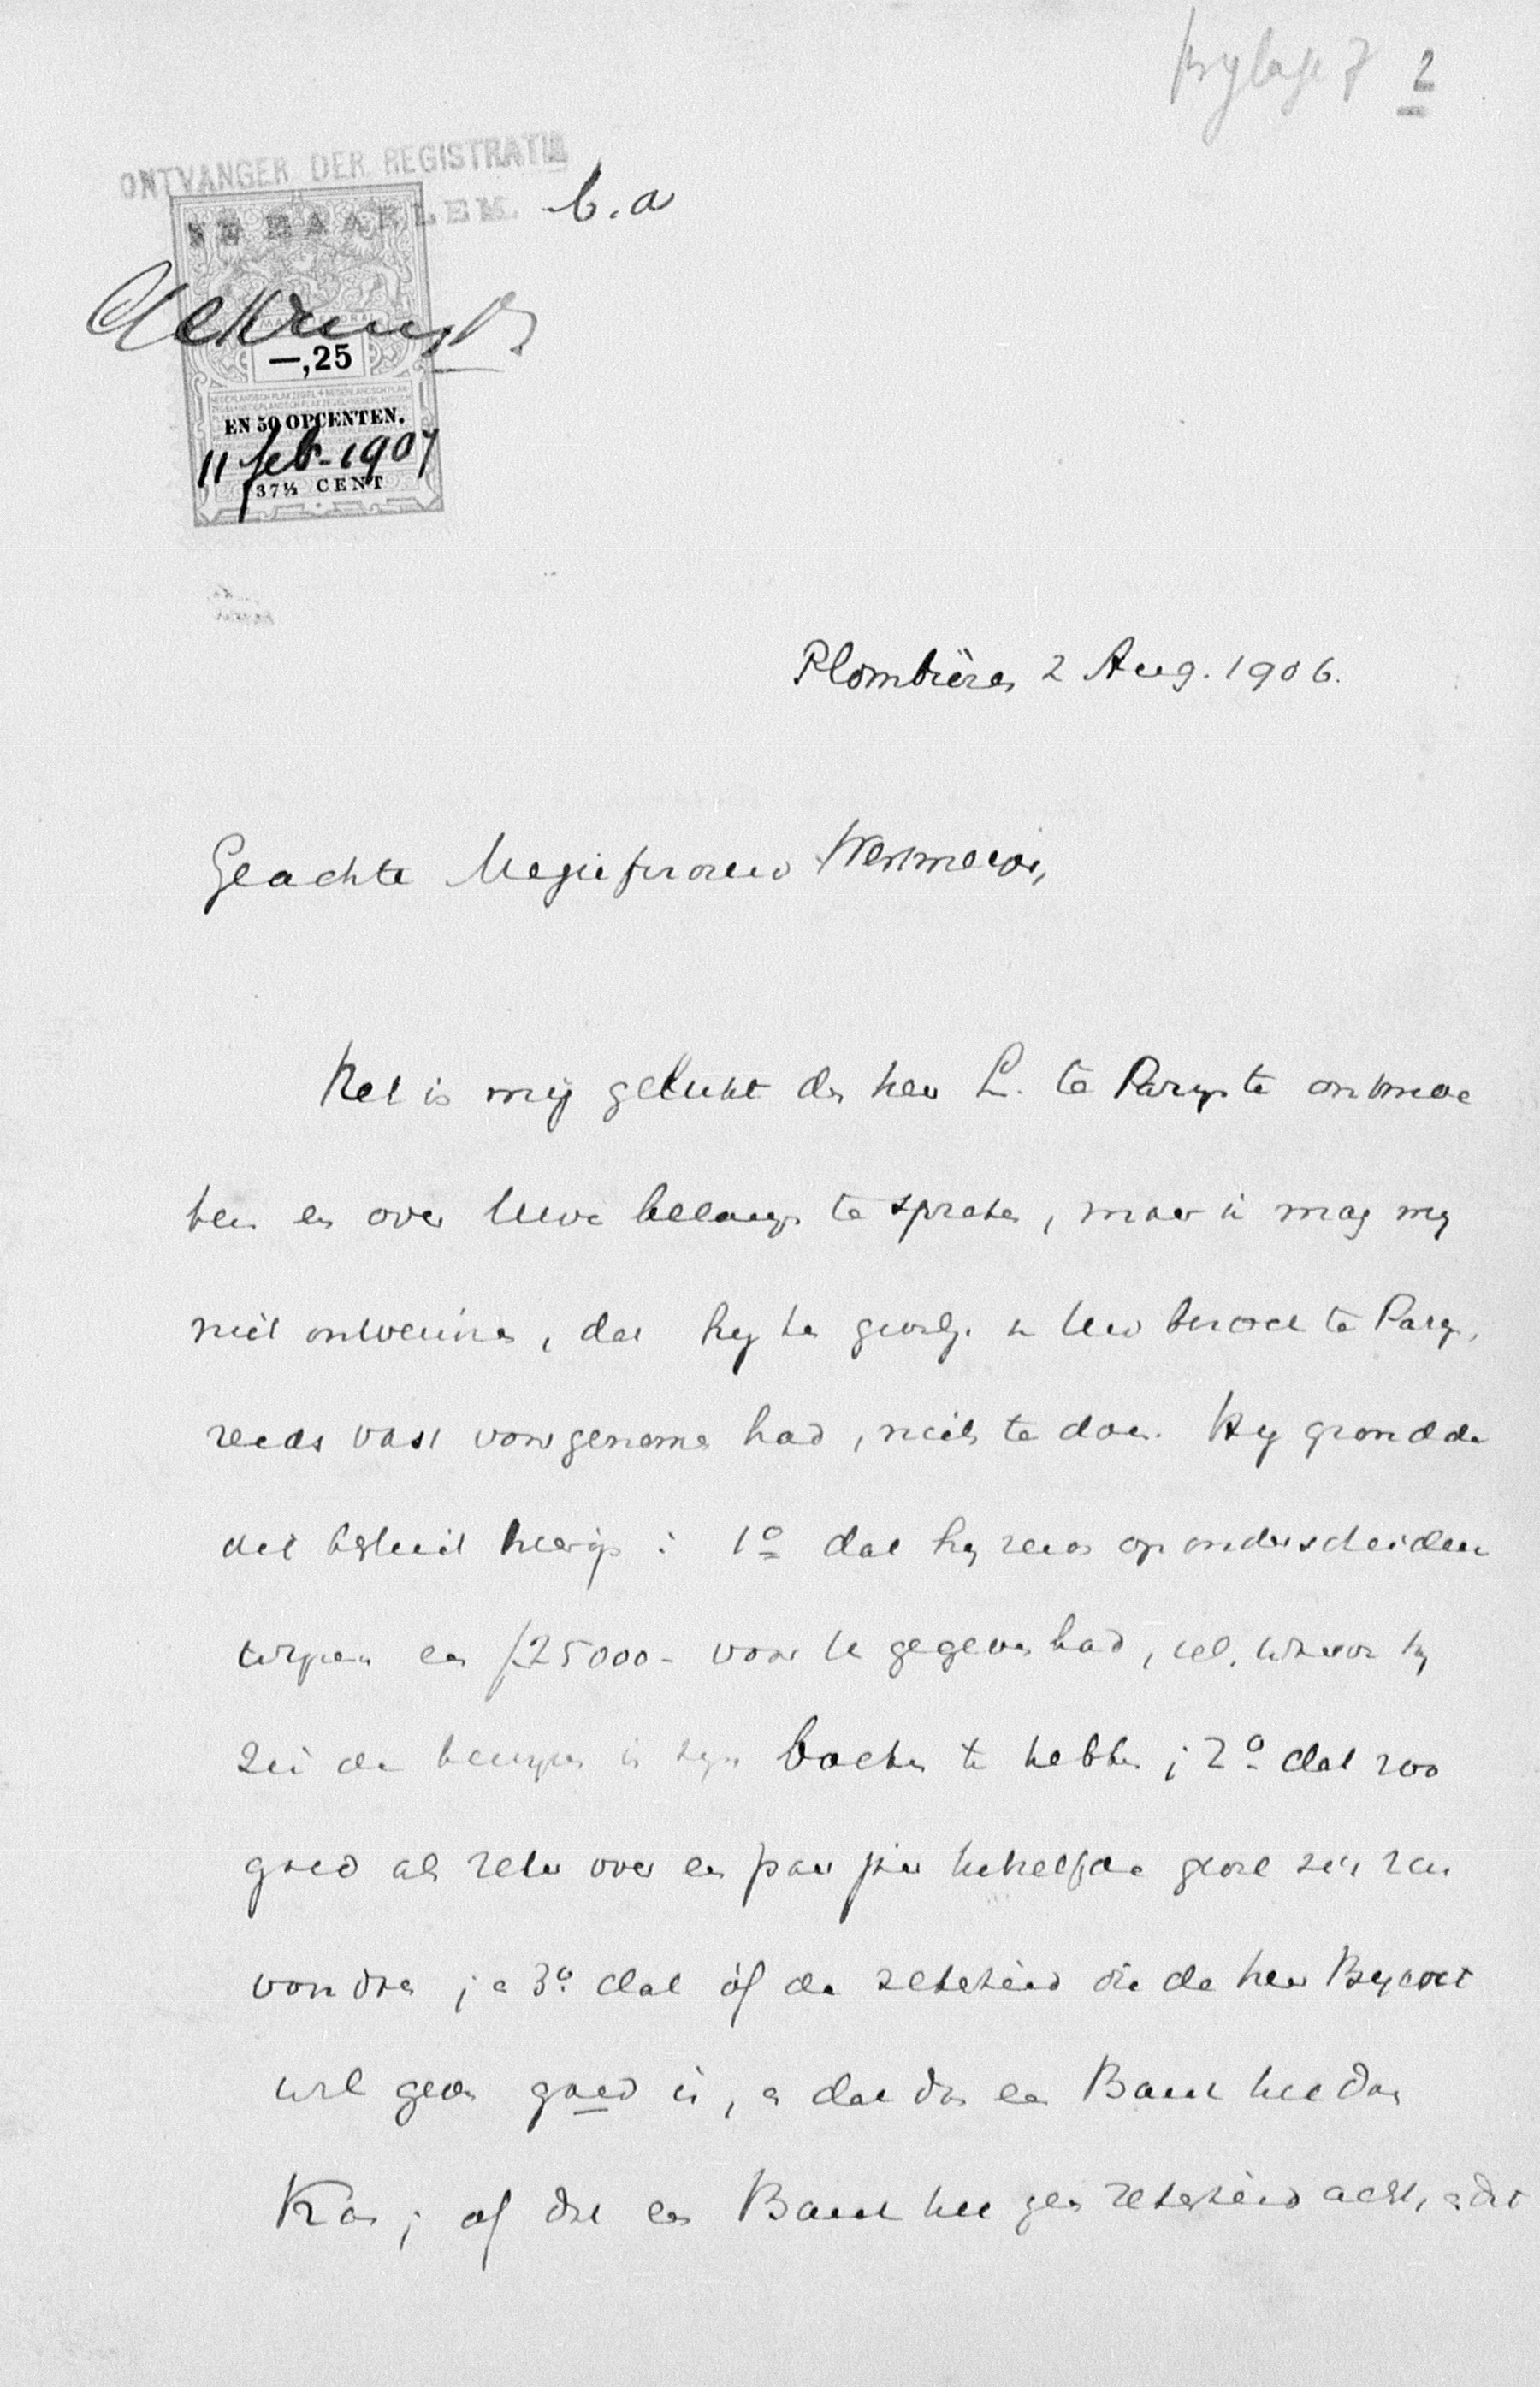 bylage 7 2
ONTVANGER DER REGISTRATIE
TE HAARLEM. b.a
—,25
EN 50 OPCENTEN.
11 feb. 1907
37½ CENT
Plombières 2 Aug. 1906.
Geachte Mejufvrouw
Het is mij gelukt den heer L. te Parys te ontmoe
ten en over Uwe belangen te spreken, maar ik mag my
niet ontveinzen, dat hy ten gevolge Uw bezoek te Parys,
reeds vast voorgenomen had, niets te doen. Hy grondde
dit besluit hierop : 1o dat hy reeds op onderscheiden
en f25000- voor U gegeven had, waarvan hy
zei de bewyzen in zyn boeken te hebben ; 2o dat zoo
goed als zeker over een paar jaar hetzelfde geval zich zou
voordoen ; en 3o dat óf de zekerheid die de heer
wil geven goed is, en dat dan een Bank het doen
Kan ; óf dat een Bank het geen zekerheid acht, en dat